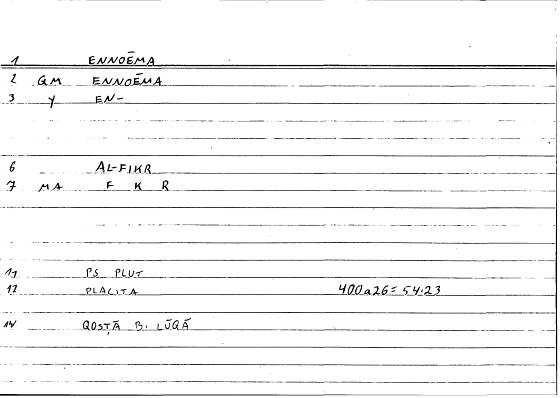 1 ENNOĒMA
2 GM ENNOĒMA
3 Y EN-
6 AL-FIKR
7 MA F K R
11 PS PLUT
12 PLACITA 400a26 = 54.23
14 QOSṬĀ B. LŪQĀ